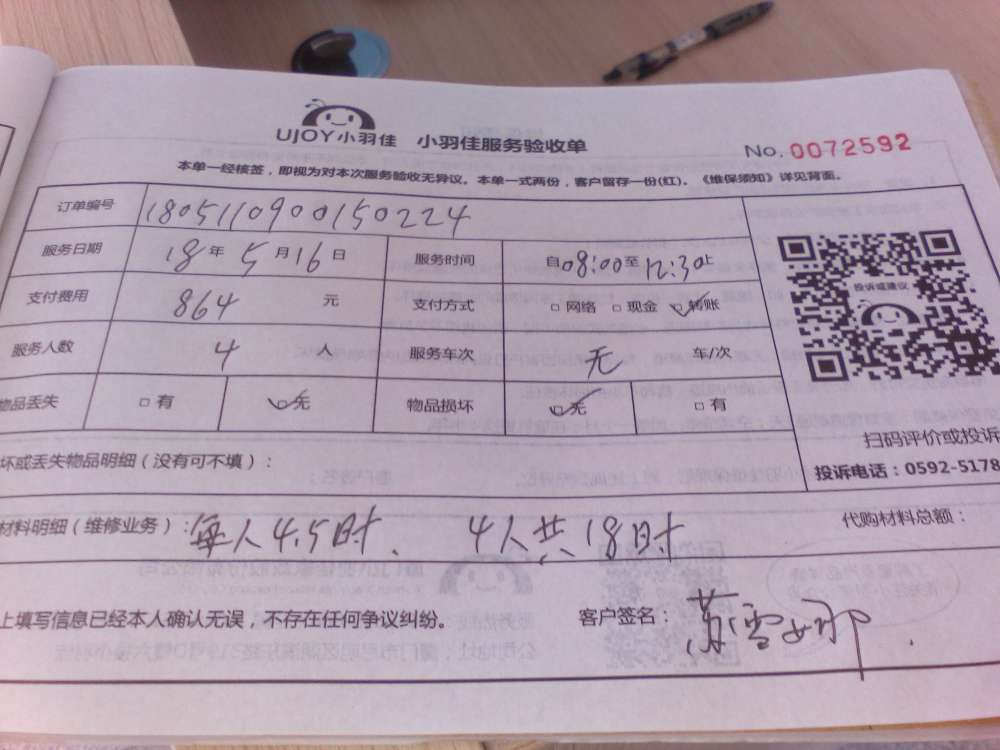 UJOY小羽佳 小羽佳服务验收单 No.0072592
本单一经核签，即视为对本次服务验收无异议。本单一式两份，客户留存一份(红)。《维保须知》详见背面。
订单编号 1805110900150224
服务日期 18年5月16日 服务时间 自08:00至12:30止
支付费用 864 元 支付方式 □网络 □现金 ☑转账
服务人数 4 人 服务车次 无 车/次
物品丢失 □有 ☑无 物品损坏 ☑无 □有
投诉或建议
扫码评价或投诉
坏或丢失物品明细（没有可不填）：
投诉电话：0592-5178
材料明细（维修业务）：每人4.5时、 4人共18时 代购材料总额：
上填写信息已经本人确认无误，不存在任何争议纠纷。 客户签名：苏雪娜